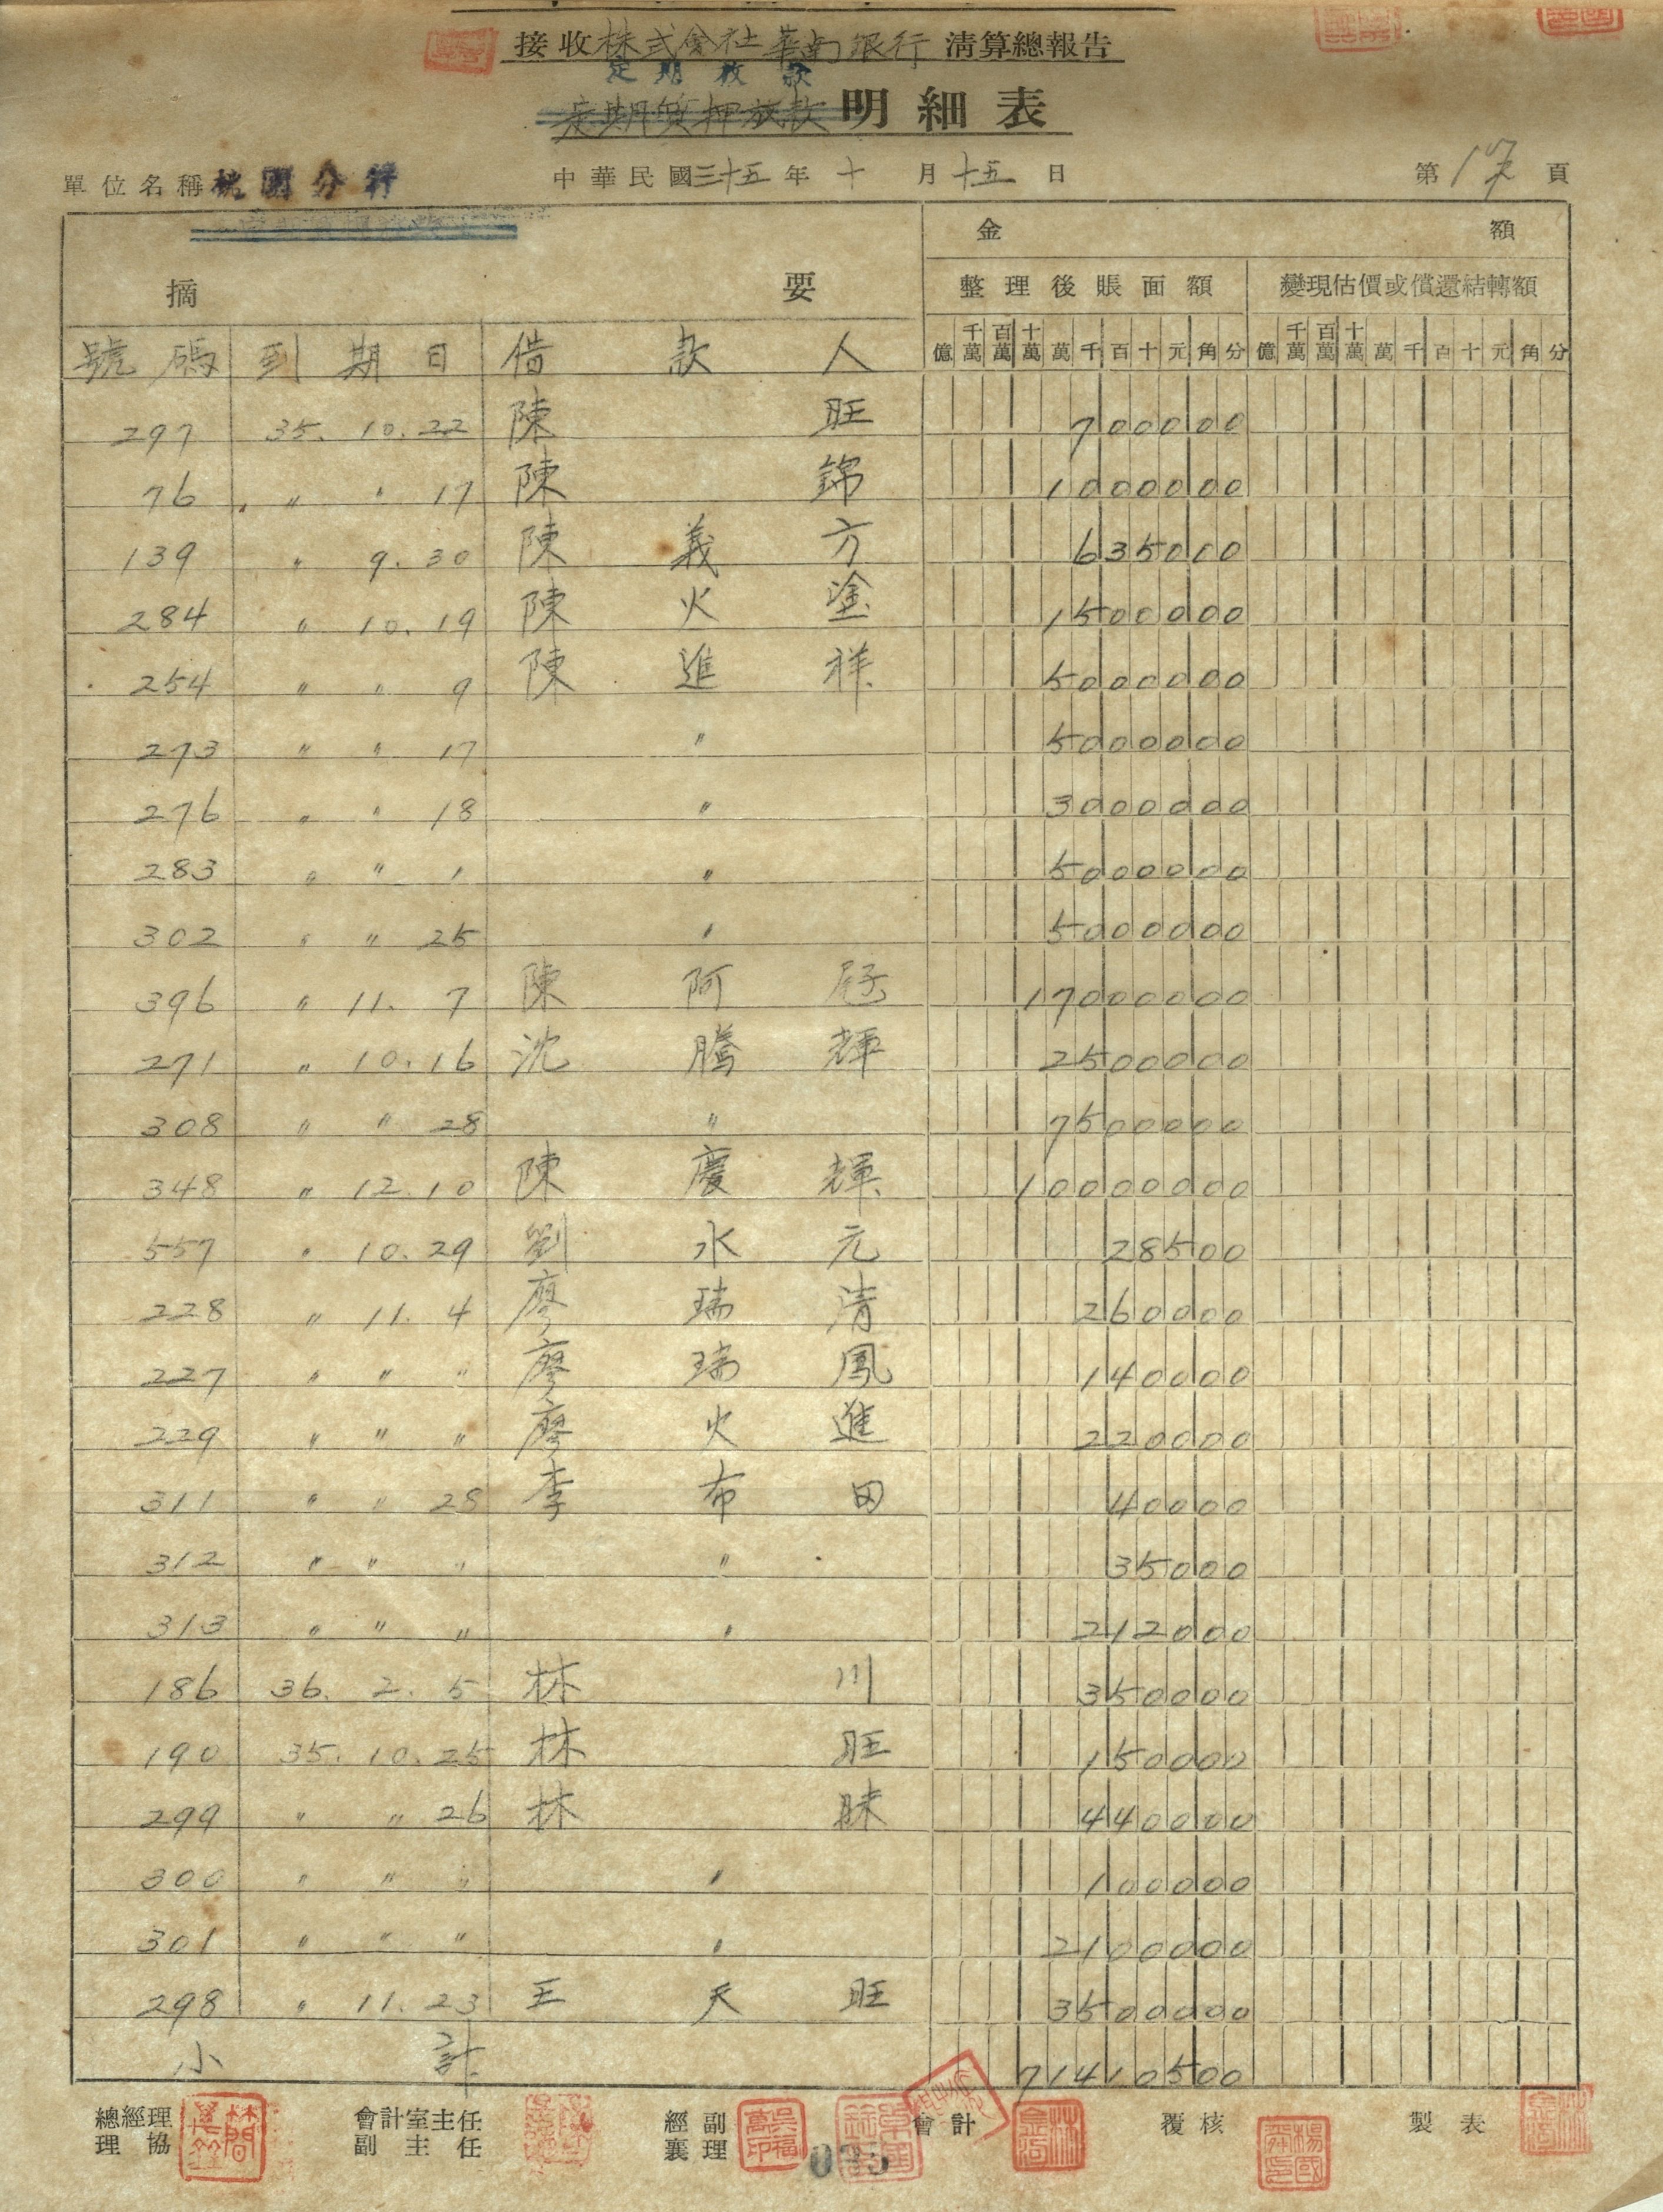 接收株式會社華南銀行清算總報告
定期放款
定期質押放款明細表
單位名稱桃園分行 中華民國三十五年十月十五日 第17頁
金額
摘要 整理後賬面額 變現估價或償還結轉額
號碼 到期日 借款人 億 千萬 百萬 十萬 萬 千 百 十 元 角 分 億 千萬 百萬 十萬 萬 千 百 十 元 角 分
297 35. 10. 22 陳旺 700000
76 〃 〃 17 陳錦 1000000
139 〃 9. 30 陳義方 635000
284 〃 10. 19 陳火塗 1500000
254 〃 〃 9 陳進祥 5000000
273 〃 〃 17 〃 5000000
276 〃 〃 18 〃 3000000
283 〃 〃 1 〃 5000000
302 〃 〃 25 〃 5000000
396 〃 11. 7 陳阿 17000000
271 〃 10. 16 沈騰輝 2500000
308 〃 〃 28 〃 7500000
348 〃 12. 10 陳慶輝 10000000
557 〃 10. 29 劉水元 28500
228 〃 11. 4 廖瑞清 260000
227 〃 〃 〃 廖瑞鳳 140000
229 〃 〃 〃 廖火進 220000
311 〃 〃 28 李布田 40000
312 〃 〃 〃 〃 35000
313 〃 〃 〃 〃 212000
186 36. 2. 5 林川 350000
190 35. 10. 25 林旺 150000
299 〃 〃 26 林 440000
300 〃 〃 〃 〃 100000
301 〃 〃 〃 〃 2100000
298 〃 11. 23 王天旺 3500000
小計 71410500
總經理 會計室主任 經副 會計 覆核 製表
理協 副主任 襄理
035